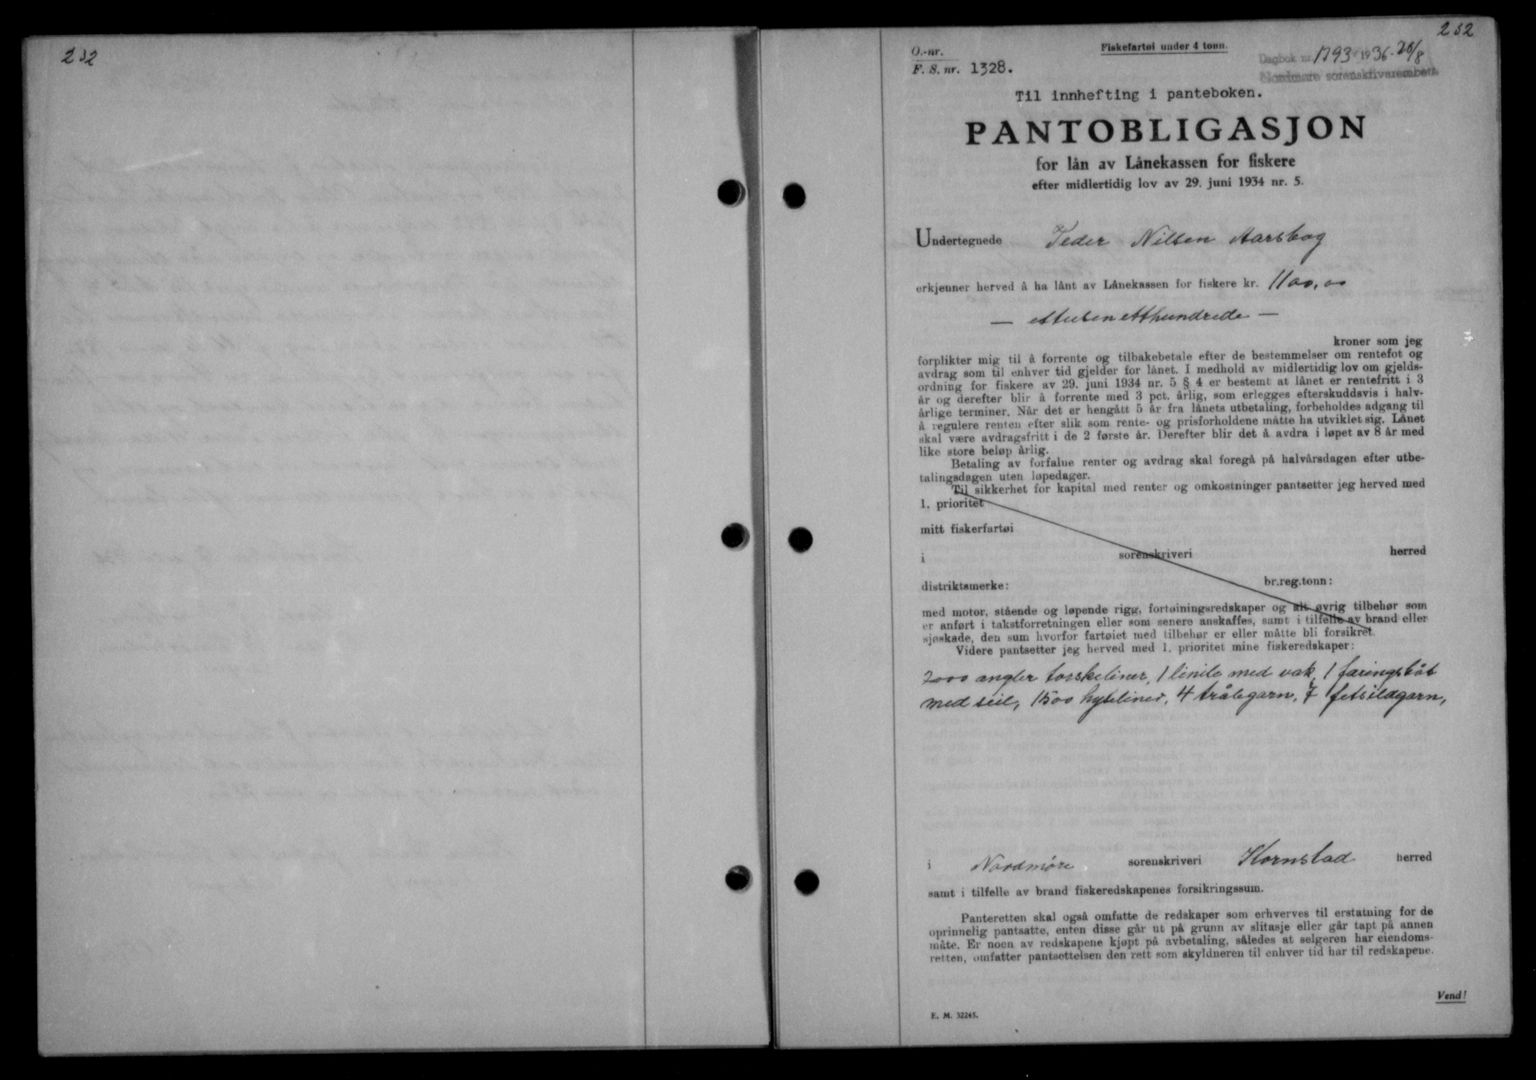 232
232
O.-nr.
F. S. nr. 1328.
Fiskefartøi under 4 tonn.
Dagbok nr. 1793 1936-26/8
Nordmøre sorenskriverembete
Til innhefting i panteboken.
PANTOBLIGASJON
for lån av Lånekassen for fiskere
efter midlertidig lov av 29. juni 1934 nr. 5.
Undertegnede Peder Nilsen Aarsbog
erkjenner herved å ha lånt av Lånekassen for fiskere kr. 1100,00
— ettusenetthundrede —
kroner som jeg
forplikter mig til å forrente og tilbakebetale efter de bestemmelser om rentefot og
avdrag som til enhver tid gjelder for lånet. I medhold av midlertidig lov om gjelds-
ordning for fiskere av 29. juni 1934 nr. 5 § 4 er bestemt at lånet er rentefritt i 3
år og derefter blir å forrente med 3 pct. årlig, som erlegges efterskuddsvis i halv-
årlige terminer. Når det er hengått 5 år fra lånets utbetaling, forbeholdes adgang til
å regulere renten efter slik som rente- og prisforholdene måtte ha utviklet sig. Lånet
skal være avdragsfritt i de 2 første år. Derefter blir det å avdra i løpet av 8 år med
like store beløp årlig.
Betaling av forfalne renter og avdrag skal foregå på halvårsdagen efter utbe-
talingsdagen uten løpedager.
Til sikkerhet for kapital med renter og omkostninger pantsetter jeg herved med
1. prioritet
mitt fiskerfartøi
i sorenskriveri herred
distriktsmerke: br.reg.tonn:
med motor, stående og løpende rigg, fortøiningsredskaper og alt øvrig tilbehør som
er anført i takstforretningen eller som senere anskaffes, samt i tilfelle av brand eller
sjøskade, den sum hvorfor fartøiet med tilbehør er eller måtte bli forsikret.
Videre pantsetter jeg herved med 1. prioritet mine fiskeredskaper:
2000 angler torskeliner, 1 linile med vak, 1 færingsbåt
med seil, 1500 hyseliner, 4 trålegarn, 7 fetsildgarn,
i Nordmøre sorenskriveri Kornstad herred
samt i tilfelle av brand fiskeredskapenes forsikringssum.
Panteretten skal også omfatte de redskaper som erhverves til erstatning for de
oprinnelig pantsatte, enten disse går ut på grunn av slitasje eller går tapt på annen
måte. Er noen av redskapene kjøpt på avbetaling, således at selgeren har eiendoms-
retten, omfatter pantsettelsen den rett som skyldneren til enhver tid har til redskapene.
Vend!
E. M. 32245.